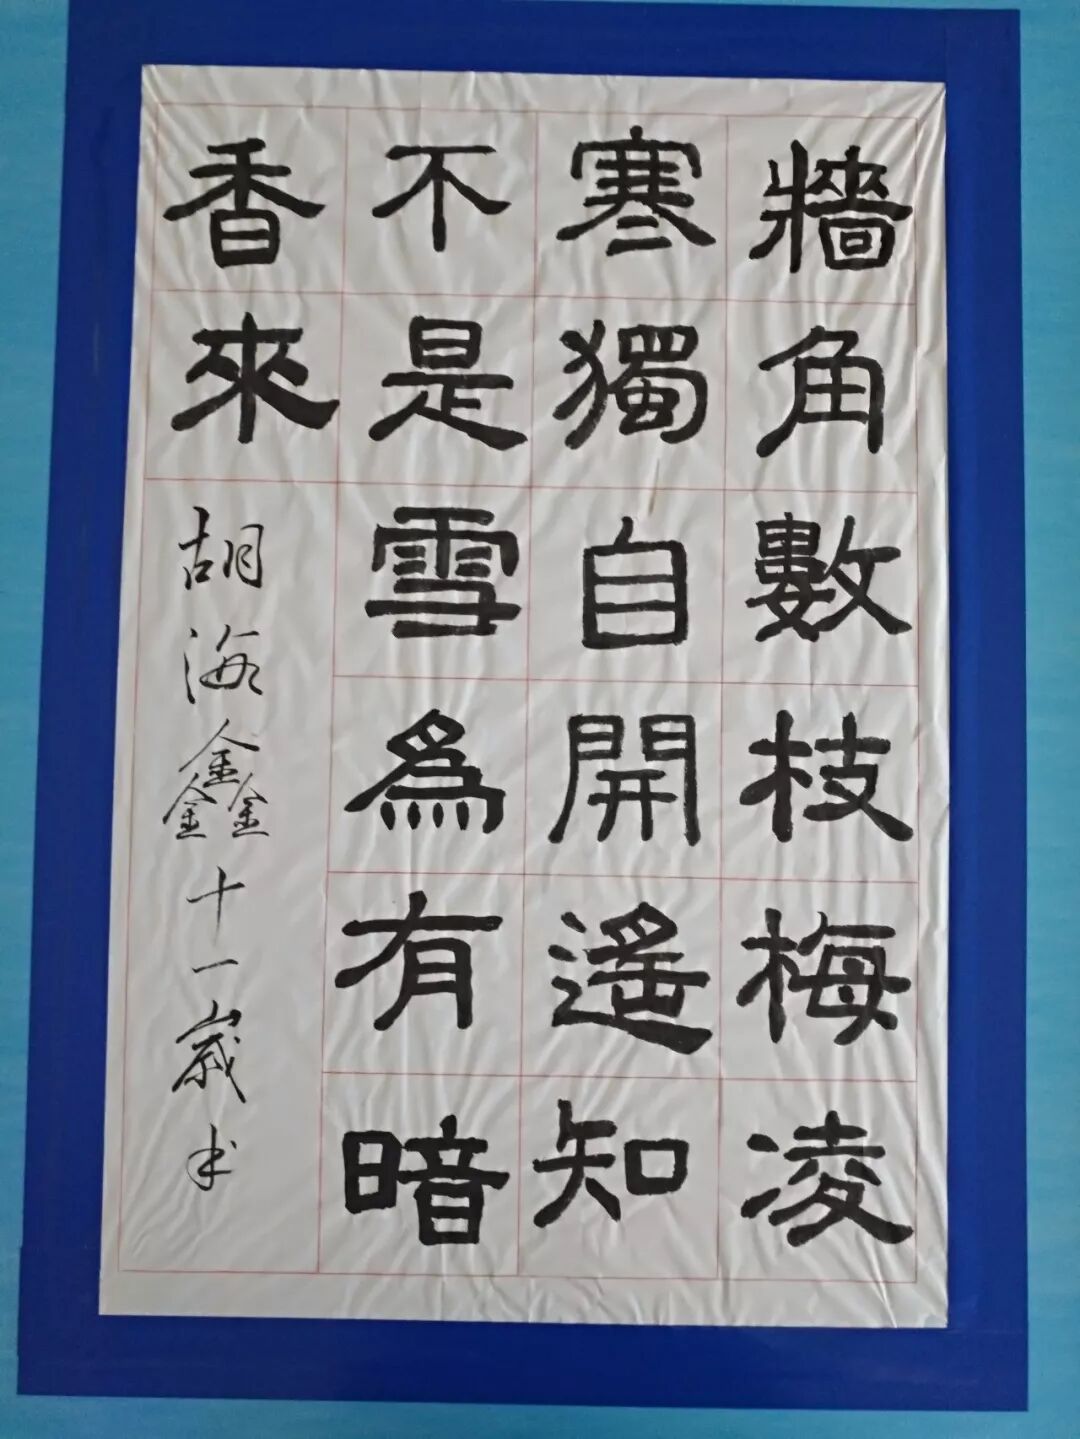 牆角數枝梅凌
寒獨自開遙知
不是雪為有暗
香來
胡海鑫十一歲书